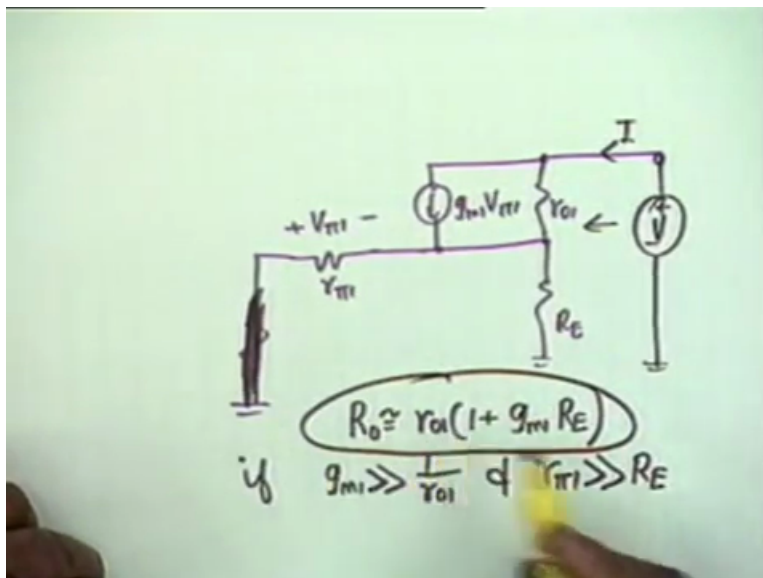 I
+ Vπ1 −
gm1Vπ1
ro1
V
rπ1
RE
Ro ≅ ro1(1 + gm1 RE)
if gm1 >> 1/ro1 & rπ1 >> RE